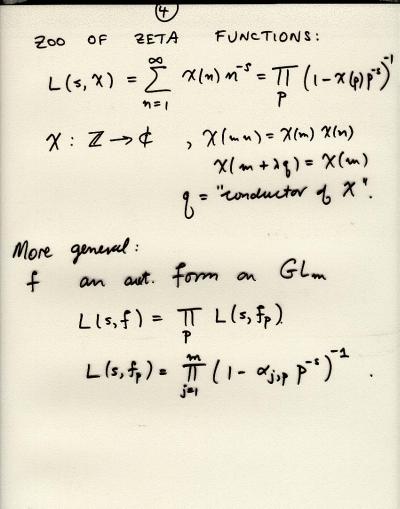 ④
ZOO OF ZETA FUNCTIONS:
L(s, χ) = ∑_{n=1}^{∞} χ(n) n^{-s} = ∏_p (1 - χ(p) p^{-s})^{-1}
χ : ℤ → ℂ , χ(mn) = χ(m) χ(n)
χ(m + λq) = χ(m)
q = "conductor of χ".
More general:
f an aut. form on GL_m
L(s, f) = ∏_p L(s, f_p).
L(s, f_p) = ∏_{j=1}^{m} (1 - α_{j,p} p^{-s})^{-1} .